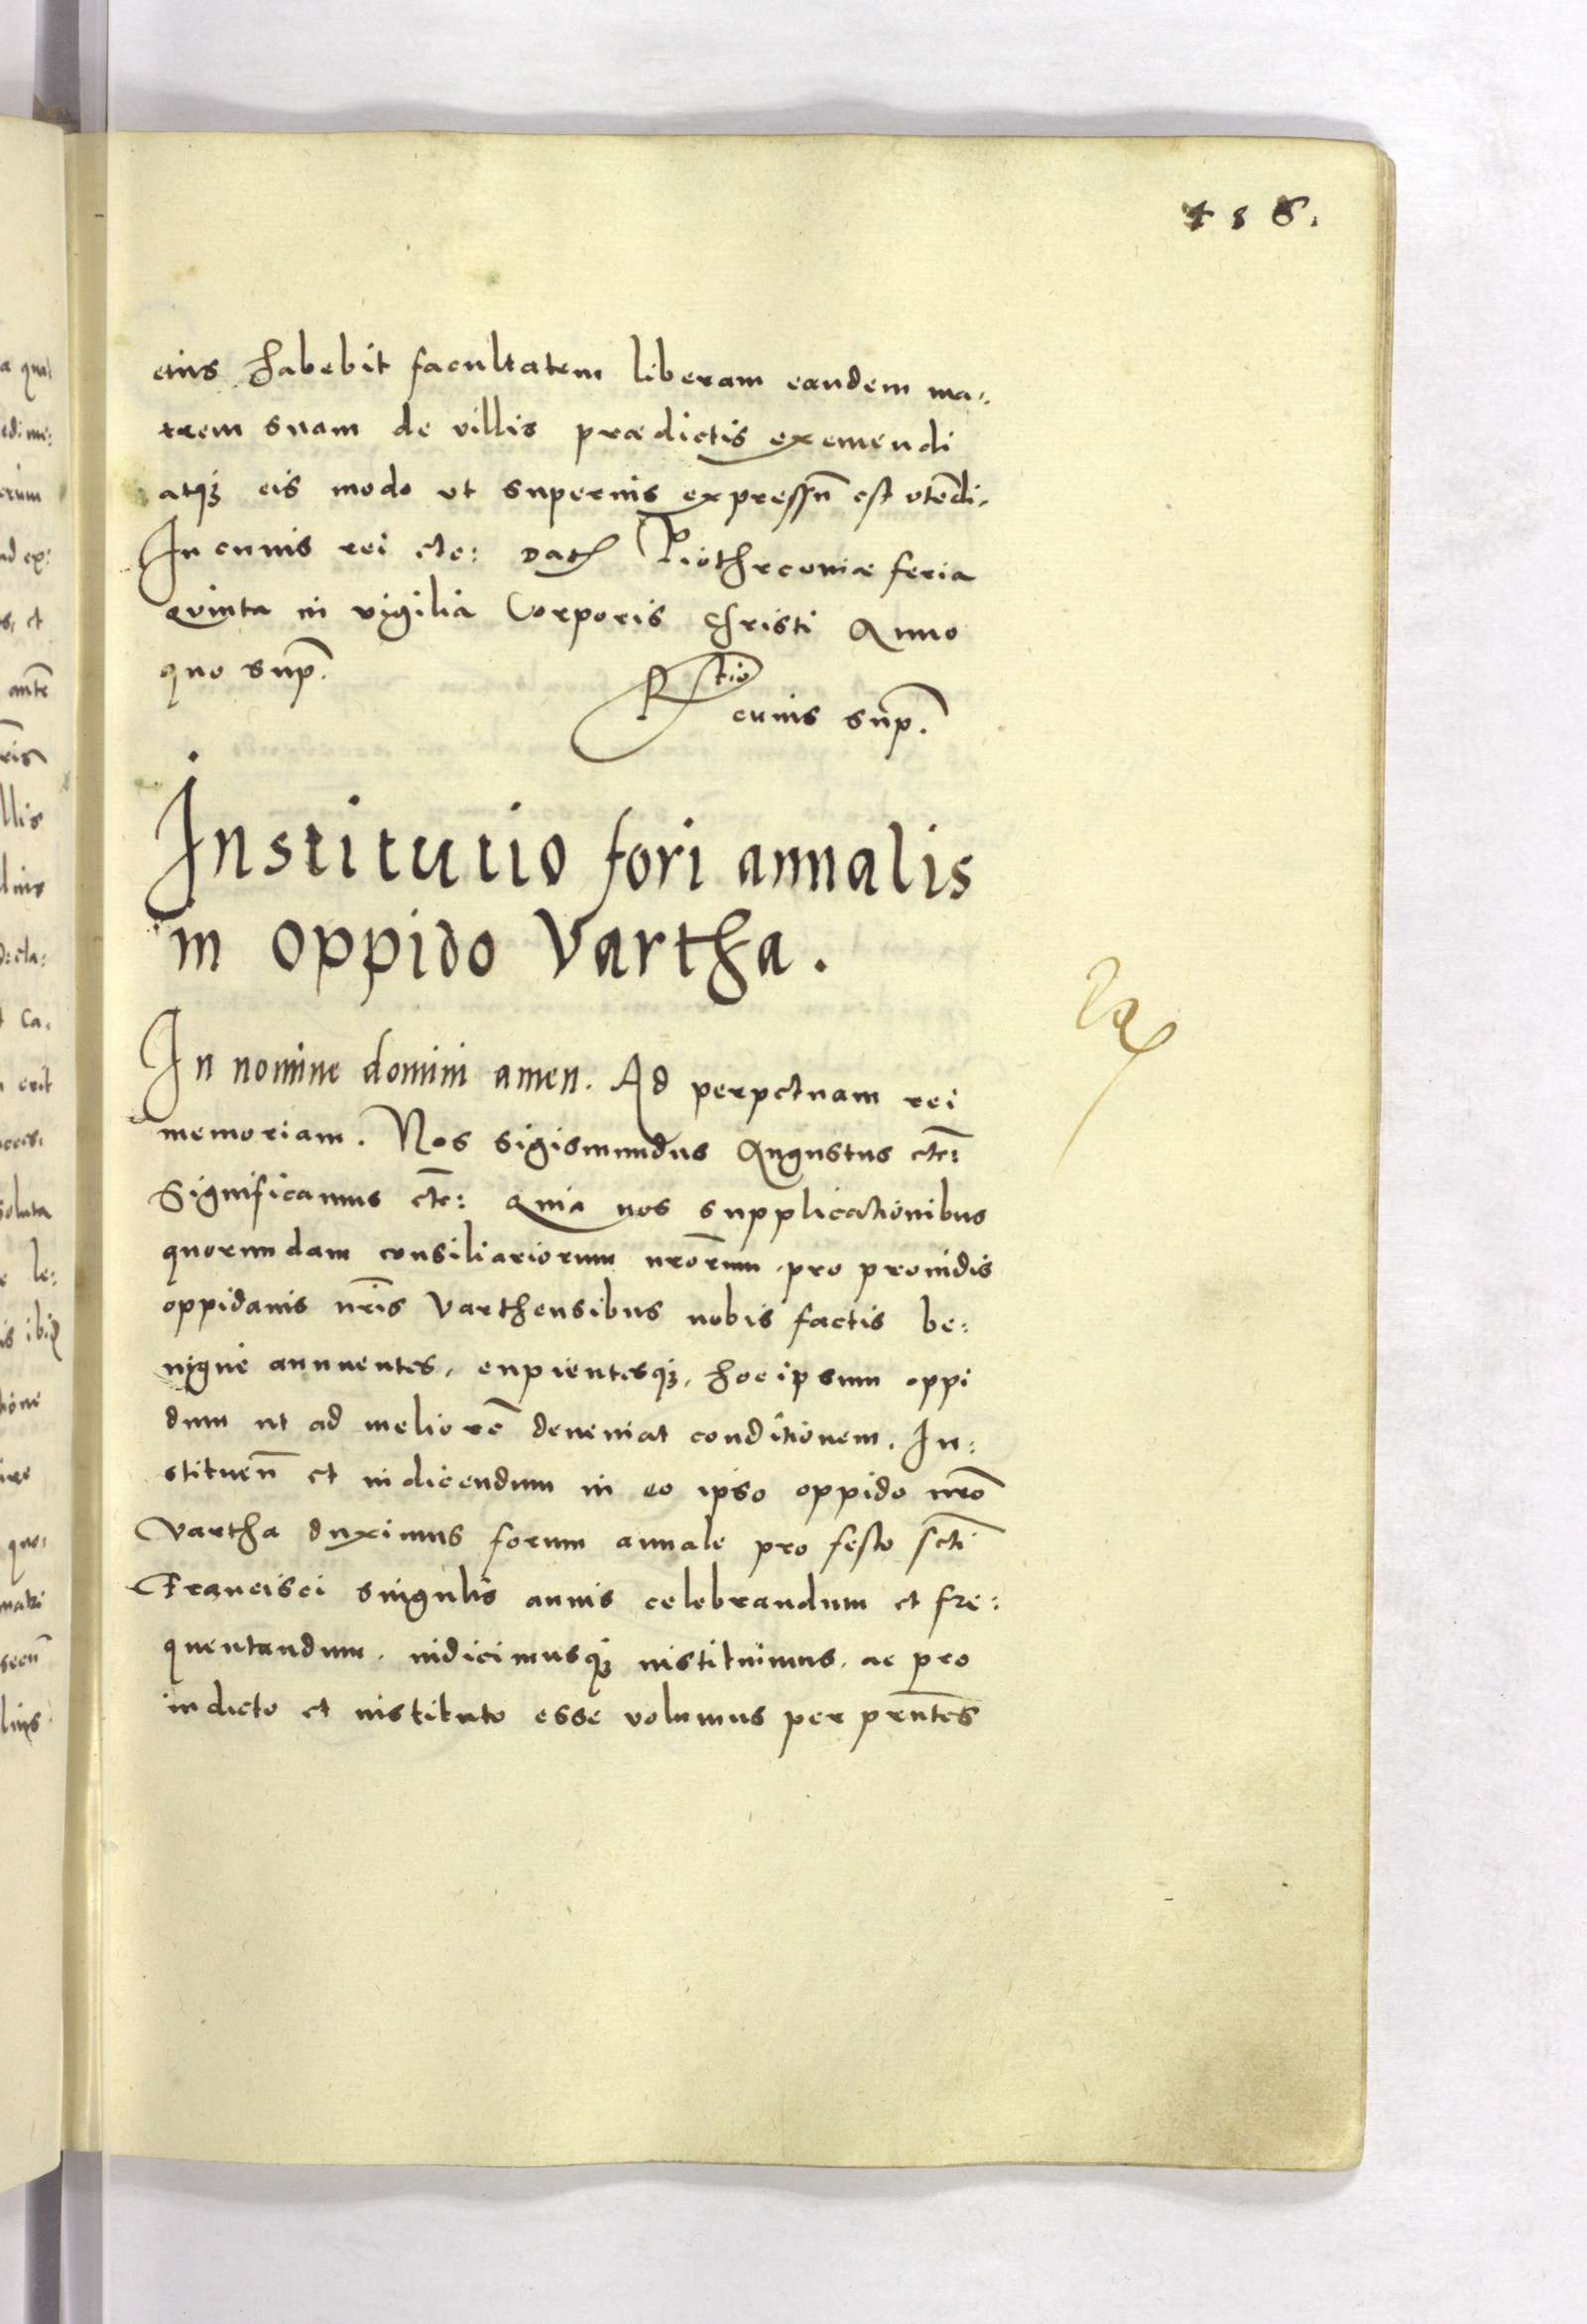 158.
eius habebit facultatem liberam eandem ma-
trem suam de villis prædictis exemendi
atq₃ eis modo ut superius expressū est utēdi.
In cuius rei etc: Dat Piothrcouiæ feria
quinta in vigilia Corporis Christi Anno
quo sup.
Rtio
cuius sup.
Institutio fori annalis
in oppido Vartha.
In nomine domini amen. Ad perpetuam rei
memoriam. Nos Sigismundus Augustus etc:
Significamus etc: Quia nos supplicationibus
quorundam consiliariorum nrorum, pro prouidis
oppidanis nris Varthensibus nobis factis be:
nigne annuentes, cupientesq₃, hoc ipsum oppi
dum ut ad meliorē deueniat conditionem. In:
stituen̄ et indicendum in eo ipso oppido nro
Vartha duximus forum annale pro festo scti
Francisci singulis annis celebrandum et fre:
quentandum, indicimusq₃ instituimus, ac pro
indicto et instituto esse volumus per prntes